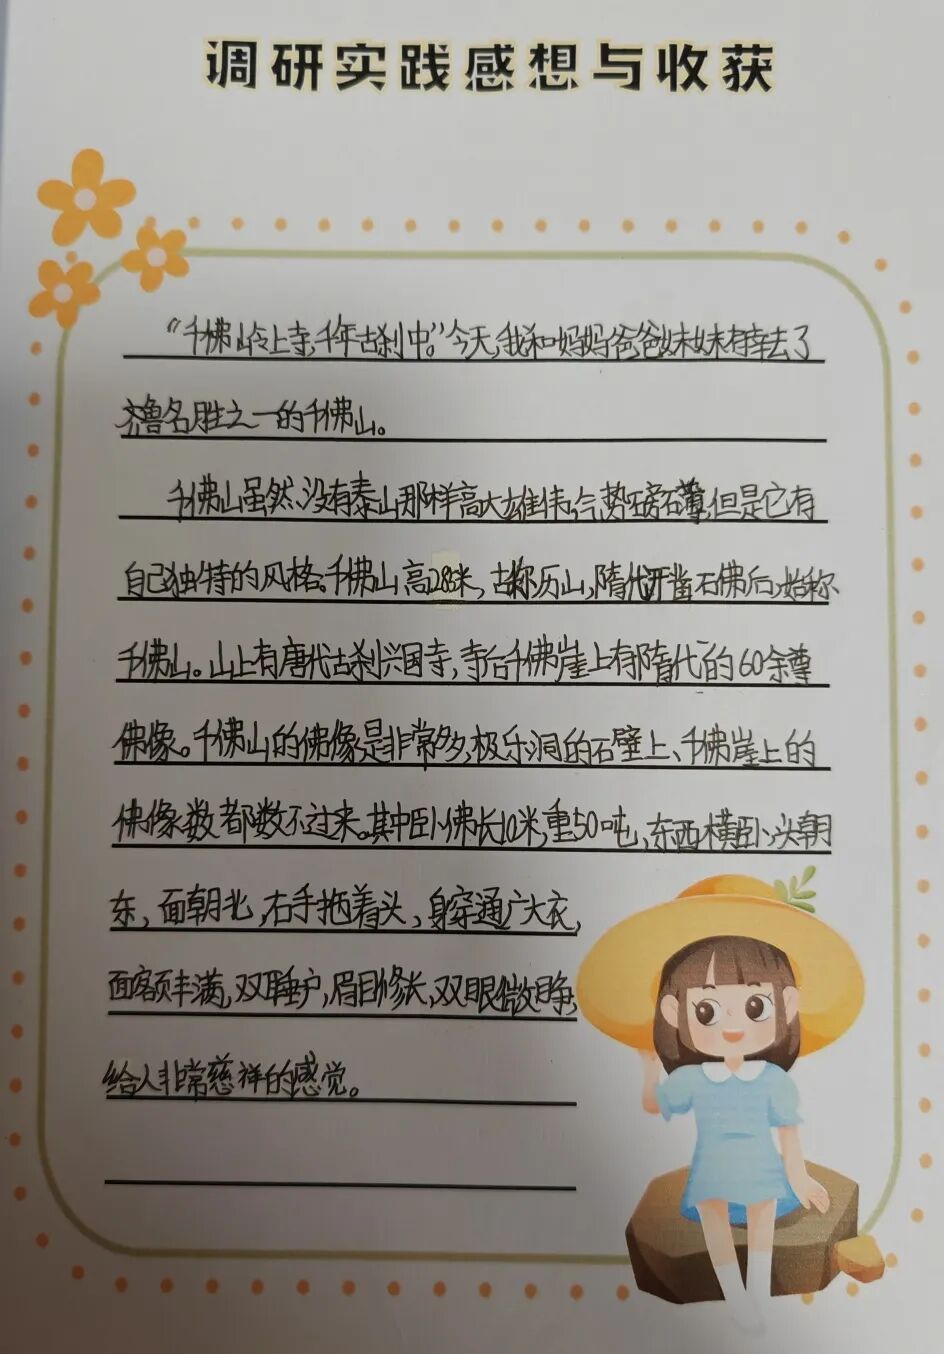 调研实践感想与收获
“千佛山岭上寺,千年古刹中。”今天,我和妈妈爸爸妹妹有幸去了
齐鲁名胜之一的千佛山。
千佛山虽然没有泰山那样高大雄伟,气势磅礴,但是它有
自己独特的风格。千佛山高285米,古称历山,隋代开凿石佛后,始称
千佛山。山上有唐代古刹兴国寺,寺后千佛崖上有隋代的60余尊
佛像。千佛山的佛像是非常多,极乐洞的石壁上、千佛崖上的
佛像数都数不过来。其中卧佛长10米,重50吨,东西横卧,头朝
东,面朝北,右手拖着头,身穿通广大衣,
面容丰满,双耳垂户,眉目修长,双眼微睁,
给人非常慈祥的感觉。